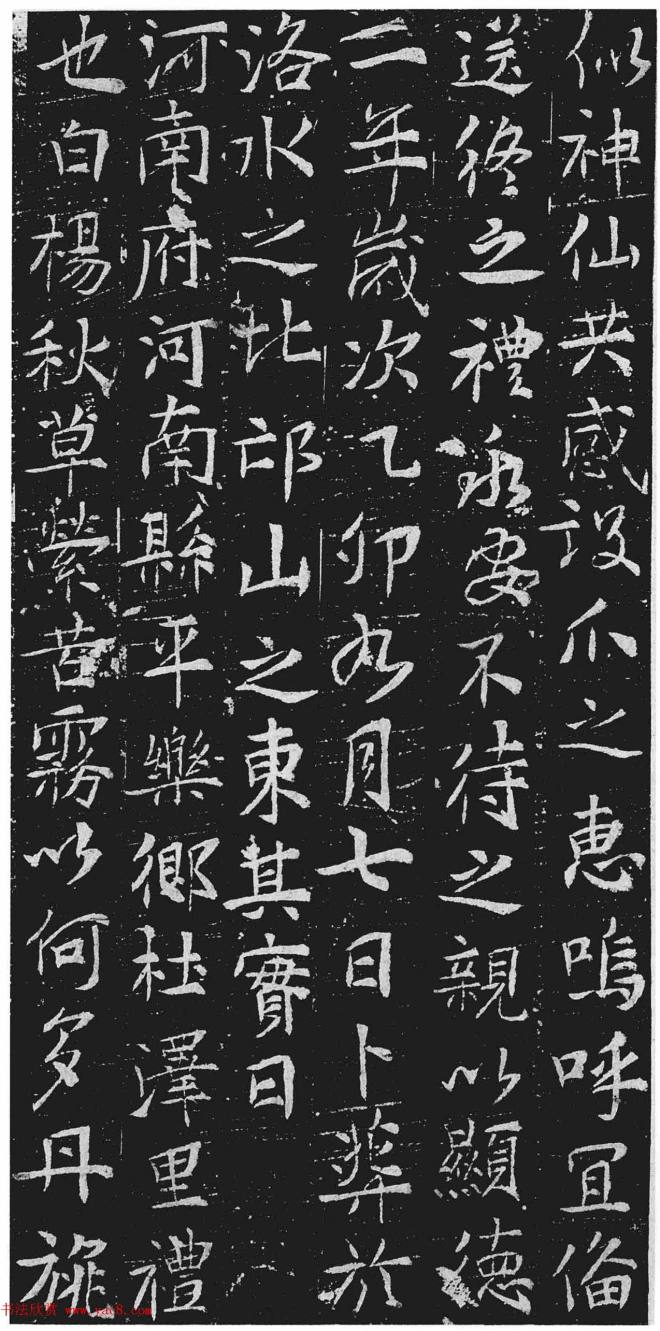 似神仙共感設爪之惠嗚呼冝俻
送終之禮永安不待之親以顯德
二年歲次乙卯九月七日卜葬於
洛水之北邙山之東其實曰
河南府河南縣平樂鄉杜澤里禮
也白楊秋草縈苦霧以何多丹旐
书法欣赏 www.yac8.com